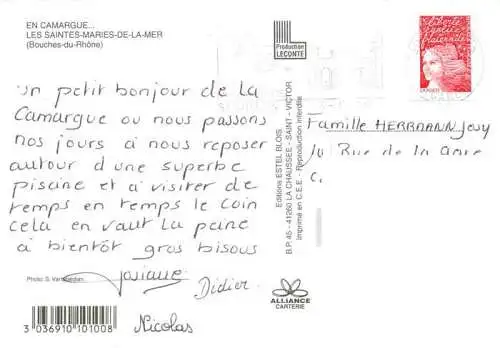 EN CAMARGUE...
LES SAINTES-MARIES-DE-LA-MER
(Bouches-du-Rhône)
Un petit bonjour de la
Camargue ou nous passons
nos jours à nous reposer
autour d'une superbe
piscine et à visiter de
temps en temps le coin
cela en vaut la peine
à bientôt gros bisous
Josiane
Didier
Nicolas
Photo: S.
3 036910 101008
Production
LECONTE
Editions ESTEL BLOIS
B.P. 45 - 41260 LA CHAUSSEE - SAINT - VICTOR
Imprimé en C.E.E. - Reproduction interdite
ALLIANCE
CARTERIE
liberté
égalité
fraternité
Famille HERRMANN Josy
Rue de la Gare